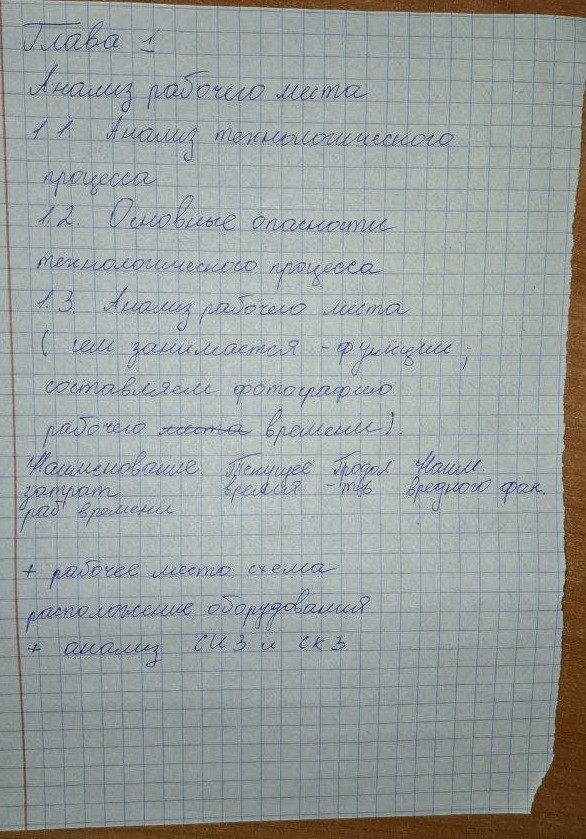 Глава 1
Анализ рабочего места
1.1. Анализ технологического
процесса
1.2. Основные опасности
технологического процесса
1.3. Анализ рабочего места
( чем занимается - функции;
составляем фотографию
рабочего места времени).
Наименование Текущее Продол Наим
затрат время - ть вредного фак.
раб времени
+ рабочее место схема
расположение оборудования
+ анализ СИЗ и СКЗ